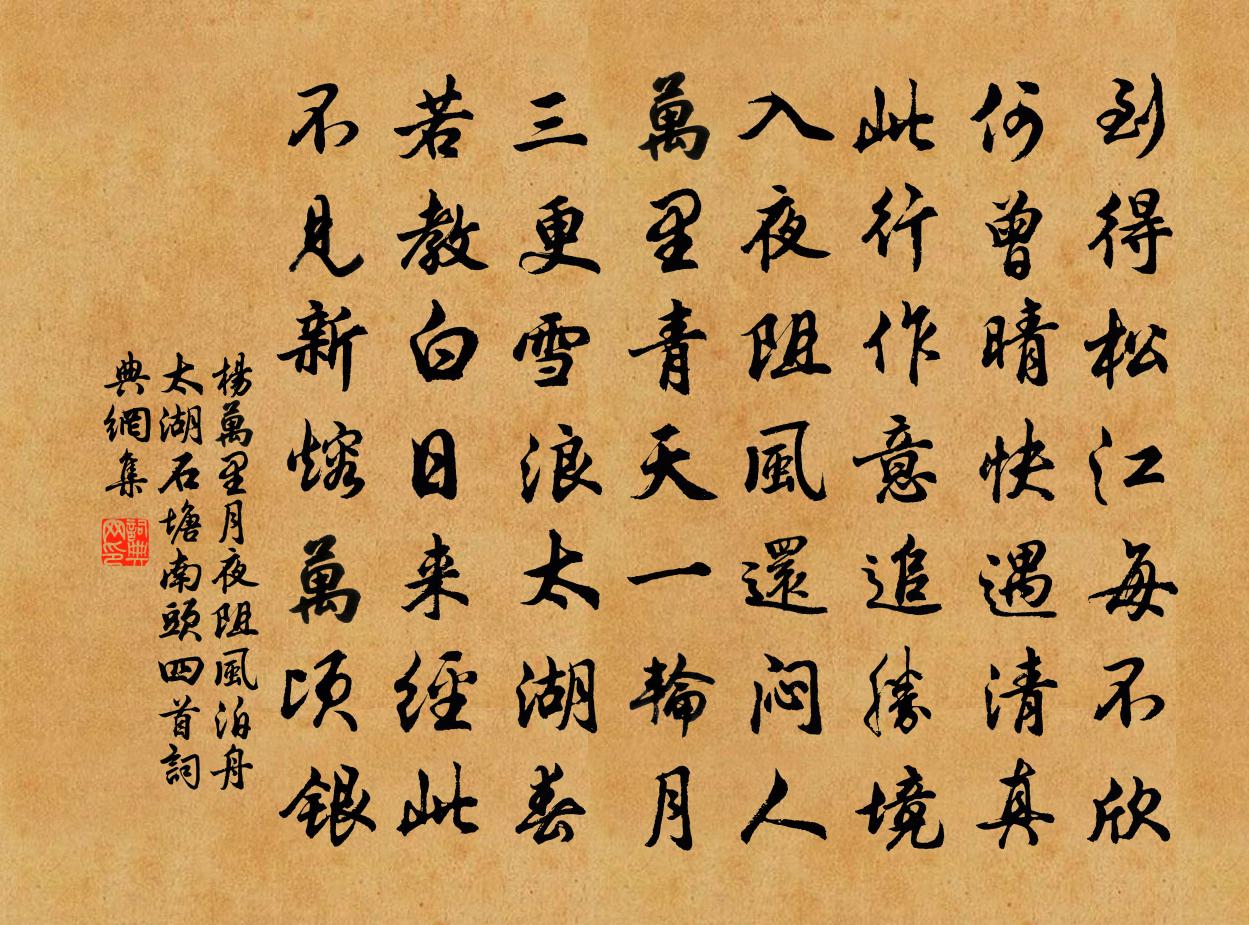 到得松江每不欣
何曾晴快遇清真
此行作意追勝境
入夜阻風還悶人
萬里青天一輪月
三更雪浪太湖春
若教白日来經此
不見新熔萬頃銀
楊萬里月夜阻風泊舟
太湖石塘南頭四首詞
典網集
詞典
网印